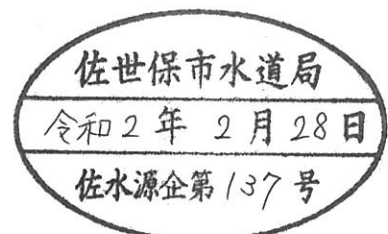 佐世保市水道局
令和2年 2月 28日
佐水源企第137号